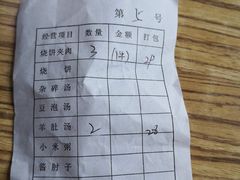 第 5 号
经营项目 数量 金额 打包
烧饼夹肉 3
烧饼
杂碎汤
豆泡汤
羊肚汤 2
小米粥
酱肘子